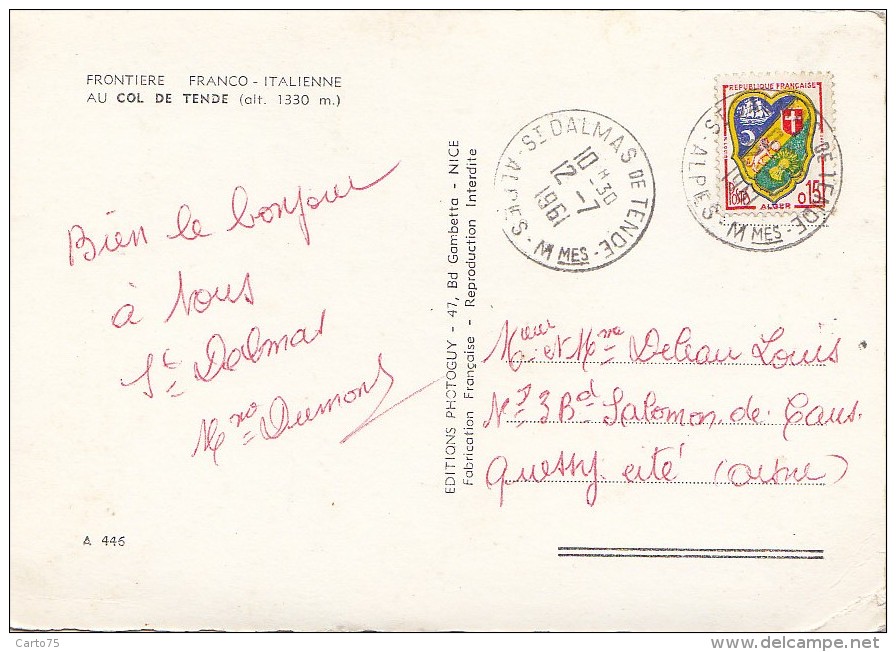 FRONTIERE FRANCO-ITALIENNE
AU COL DE TENDE (alt. 1330 m.)
Bien le bonjour
à vous
St Dalmas
Mme Dumont
A 446
EDITIONS PHOTOGUY - 47, Bd Gambetta - NICE
Fabrication Française - Reproduction Interdite
ST DALMAS DE TENDE
ALPES - MMES
10 H 30
12 - 7
1961
REPUBLIQUE FRANÇAISE
POSTES
0,15
ALGER
DE TENDE
ALPES - MMES
et Mme Deleau Louis
N° 3 Bd Salomon de Caus.
Quessy cité (aisne)
Carto75
www.delcampe.net